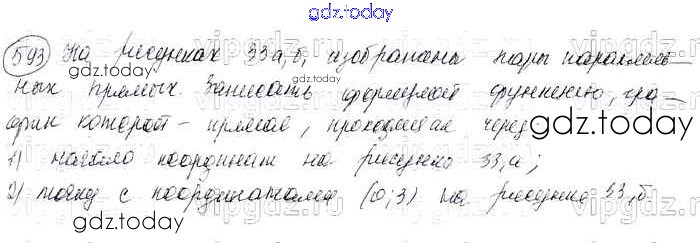 gdz.today
593 На рисунках 33 а, б, изображены пары параллель-
gdz.today
ных прямых. Записать формулой функцию, гра-
gdz.today
фик которой - прямая, проходящая через
gdz.today
1) начало координат на рисунке 33, а;
2) точку с координатами (0; 3) на рисунке 33, б.
gdz.today